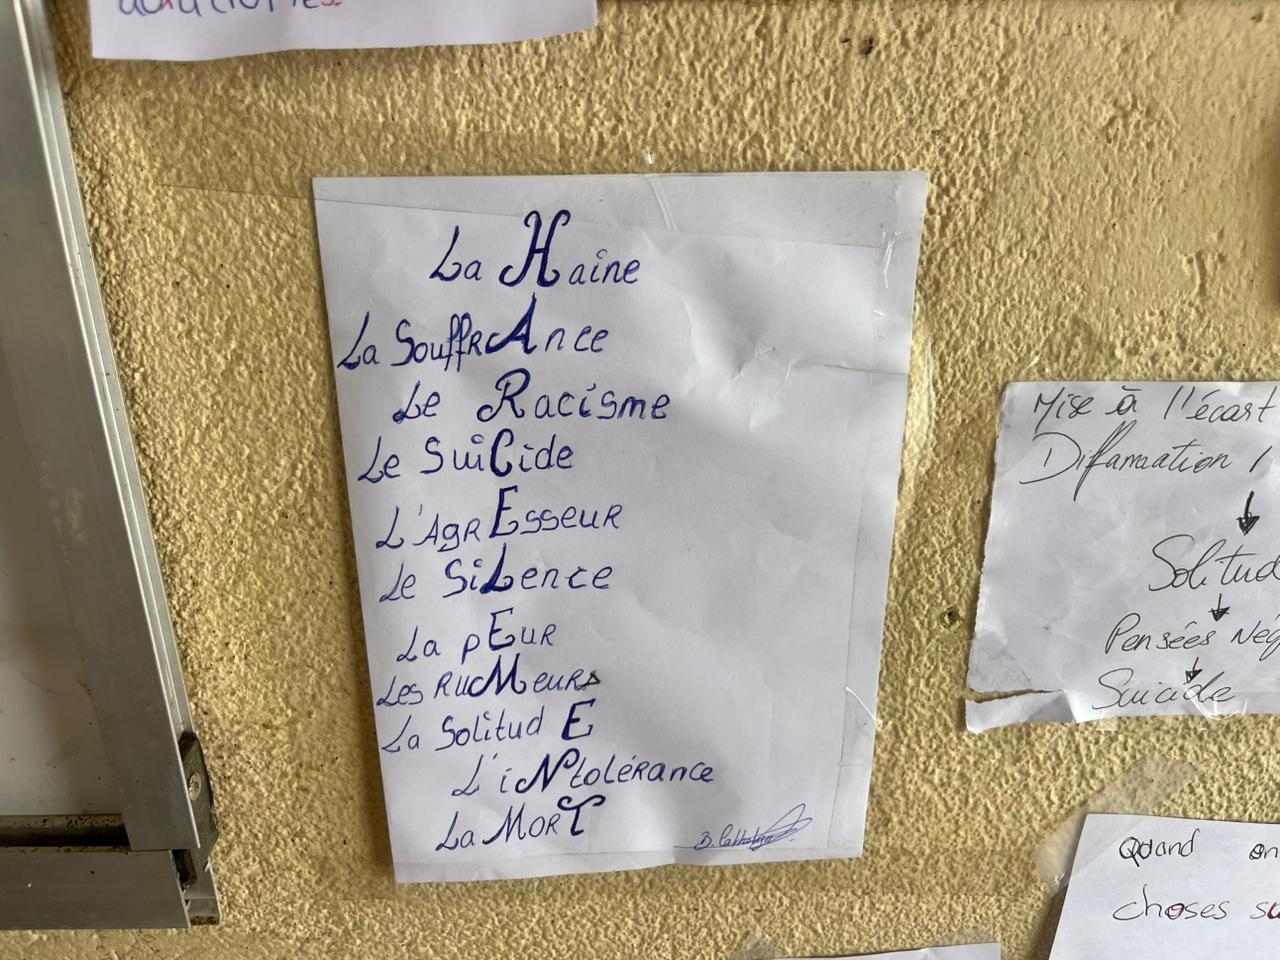 La Haine
La SouffRAnce
Le Racisme
Le SuiCide
L'AgREsseuR
Le SiLence
La pEuR
Les RuMeuRs
La SolitudE
L'iNtoléRance
La MoRT
Mise à l'écart
Diffamation /
Solitud
Pensées Nég
Suicide
Quand on
choses su